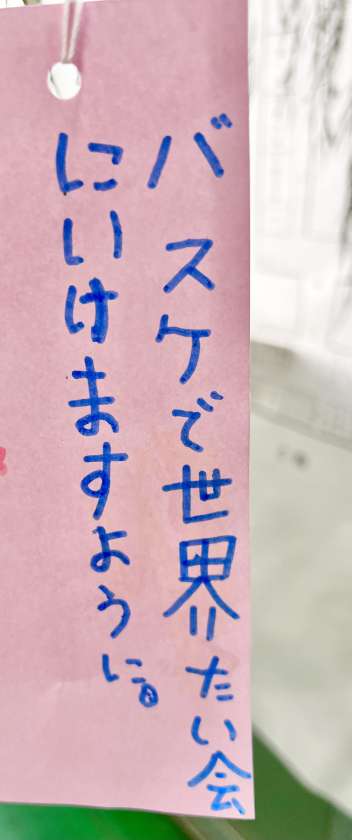 バスケで世界たい会
にいけますように。